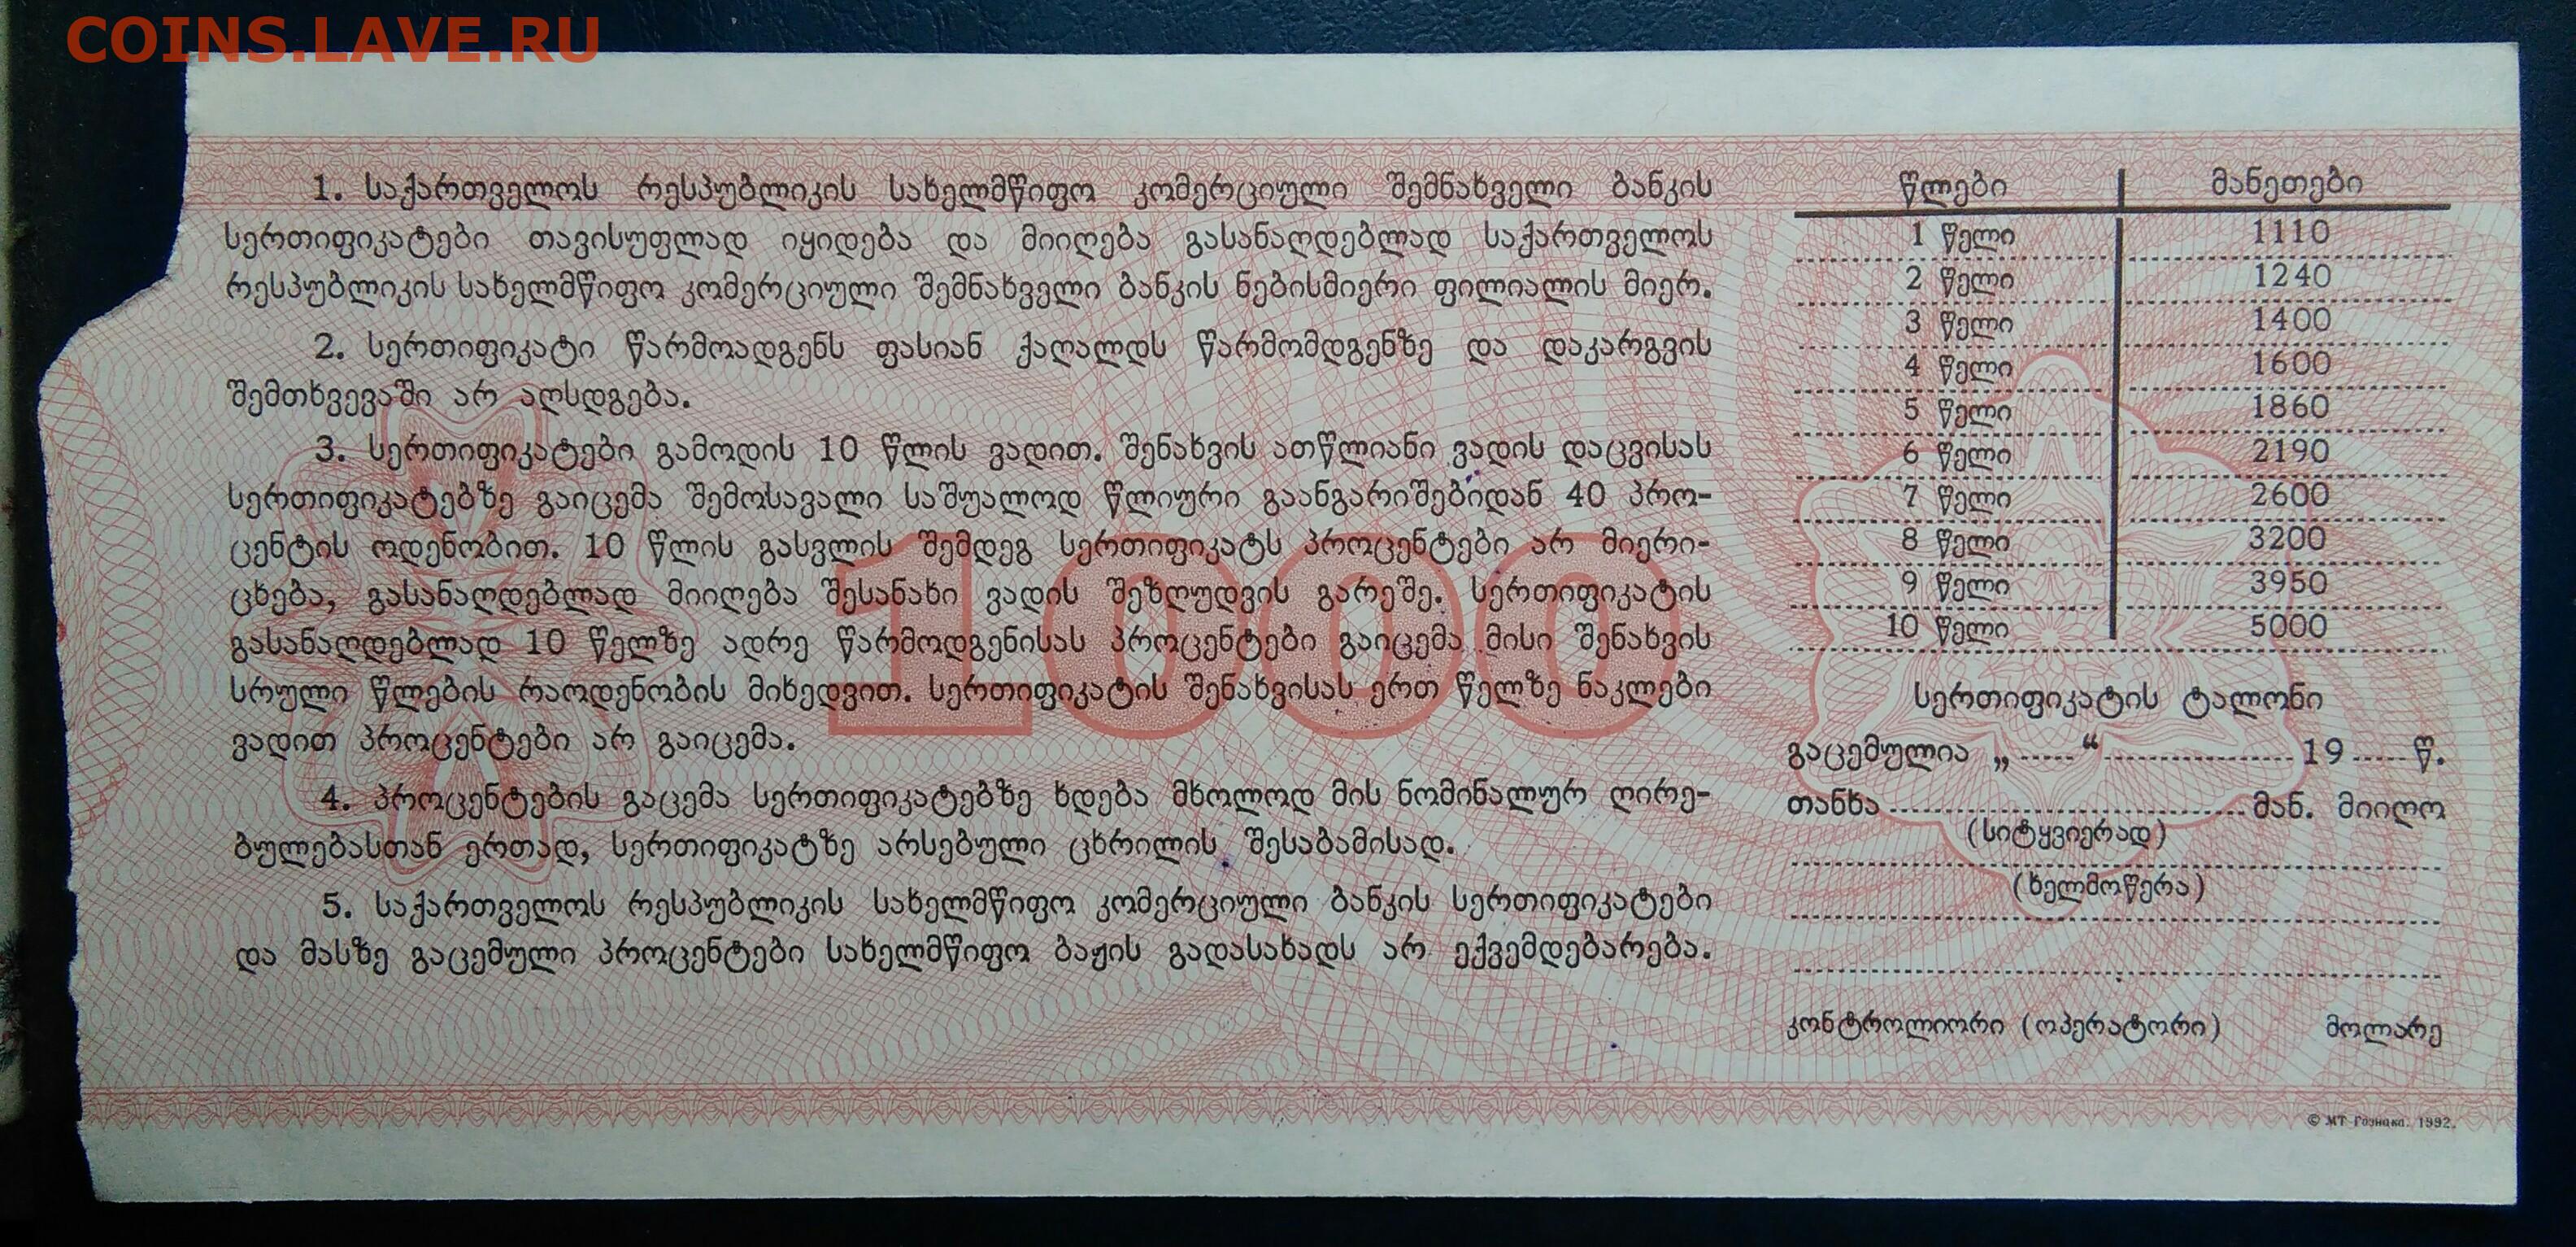 COINS.LAVE.RU
1. საქართველოს რესპუბლიკის სახელმწიფო კომერციული შემნახველი ბანკის
სერთიფიკატები თავისუფლად იყიდება და მიიღება გასანაღდებლად საქართველოს
რესპუბლიკის სახელმწიფო კომერციული შემნახველი ბანკის ნებისმიერი ფილიალის მიერ.
2. სერთიფიკატი წარმოადგენს ფასიან ქაღალდს წარმომდგენზე და დაკარგვის
შემთხვევაში არ აღსდგება.
3. სერთიფიკატები გამოდის 10 წლის ვადით. შენახვის ათწლიანი ვადის დაცვისას
სერთიფიკატებზე გაიცემა შემოსავალი საშუალოდ წლიური გაანგარიშებიდან 40 პრო-
ცენტის ოდენობით. 10 წლის გასვლის შემდეგ სერთიფიკატს პროცენტები არ მიერი-
ცხება, გასანაღდებლად მიიღება შესანახი ვადის შეზღუდვის გარეშე. სერთიფიკატის
გასანაღდებლად 10 წელზე ადრე წარმოდგენისას პროცენტები გაიცემა მისი შენახვის
სრული წლების რაოდენობის მიხედვით. სერთიფიკატის შენახვისას ერთ წელზე ნაკლები
ვადით პროცენტები არ გაიცემა.
4. პროცენტების გაცემა სერთიფიკატებზე ხდება მხოლოდ მის ნომინალურ ღირე-
ბულებასთან ერთად, სერთიფიკატზე არსებული ცხრილის შესაბამისად.
5. საქართველოს რესპუბლიკის სახელმწიფო კომერციული ბანკის სერთიფიკატები
და მასზე გაცემული პროცენტები სახელმწიფო ბაჟის გადასახადს არ ექვემდებარება.
1000
წლები მანეთები
1 წელი 1110
2 წელი 1240
3 წელი 1400
4 წელი 1600
5 წელი 1860
6 წელი 2190
7 წელი 2600
8 წელი 3200
9 წელი 3950
10 წელი 5000
სერთიფიკატის ტალონი
გაცემულია „......“ .................. 19 ..... წ.
თანხა .................................. მან. მიიღო
(სიტყვიერად)
(ხელმოწერა)
კონტროლიორი (ოპერატორი) მოლარე
© МТ Гознака. 1992.